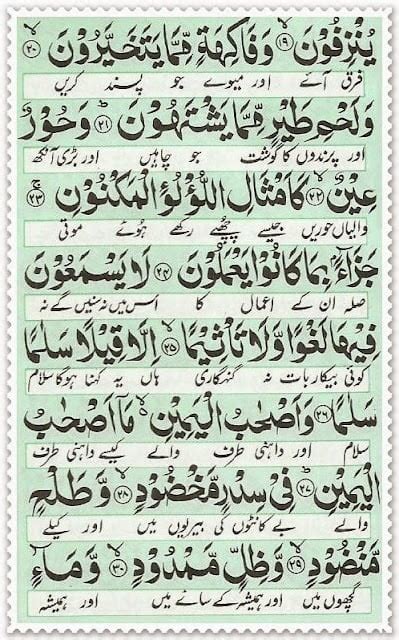 يُنْزِفُوْنَ ۙ﴿۱۹﴾ وَفَاكِهَةٍ مِّمَّا يَتَخَيَّرُوْنَ ۙ﴿۲۰﴾
فرق آئے اور میوے جو پسند کریں
وَلَحْمِ طَيْرٍ مِّمَّا يَشْتَهُوْنَ ؕ﴿۲۱﴾ وَحُوْرٌ
اور پرندوں کا گوشت جو چاہیں اور بڑی آنکھ
عِيْنٌ ۙ﴿۲۲﴾ كَاَمْثَالِ اللُّؤْلُؤِ الْمَكْنُوْنِ ۚ﴿۲۳﴾
والیاں حوریں جیسے چھپے رکھے ہوئے موتی
جَزَآءًۢ بِمَا كَانُوْا يَعْمَلُوْنَ ﴿۲۴﴾ لَا يَسْمَعُوْنَ
صلہ ان کے اعمال کا اس میں نہ سنیں گے نہ
فِيْهَا لَغْوًا وَّلَا تَاْثِيْمًا ۙ﴿۲۵﴾ اِلَّا قِيْلًا سَلٰمًا
کوئی بیکار بات نہ گنہگاری ہاں یہ کہنا ہوگا سلام
سَلٰمًا ﴿۲۶﴾ وَاَصْحٰبُ الْيَمِيْنِ ۙ مَاۤ اَصْحٰبُ
سلام اور داہنی طرف والے کیسے داہنی طرف
الْيَمِيْنِ ؕ﴿۲۷﴾ فِيْ سِدْرٍ مَّخْضُوْدٍ ۙ﴿۲۸﴾ وَّطَلْحٍ
والے بے کانٹوں کی بیریوں میں اور کیلے
مَّنْضُوْدٍ ۙ﴿۲۹﴾ وَّظِلٍّ مَّمْدُوْدٍ ۙ﴿۳۰﴾ وَّمَآءٍ
گچھوں میں اور ہمیشہ کے سائے میں اور ہمیشہ